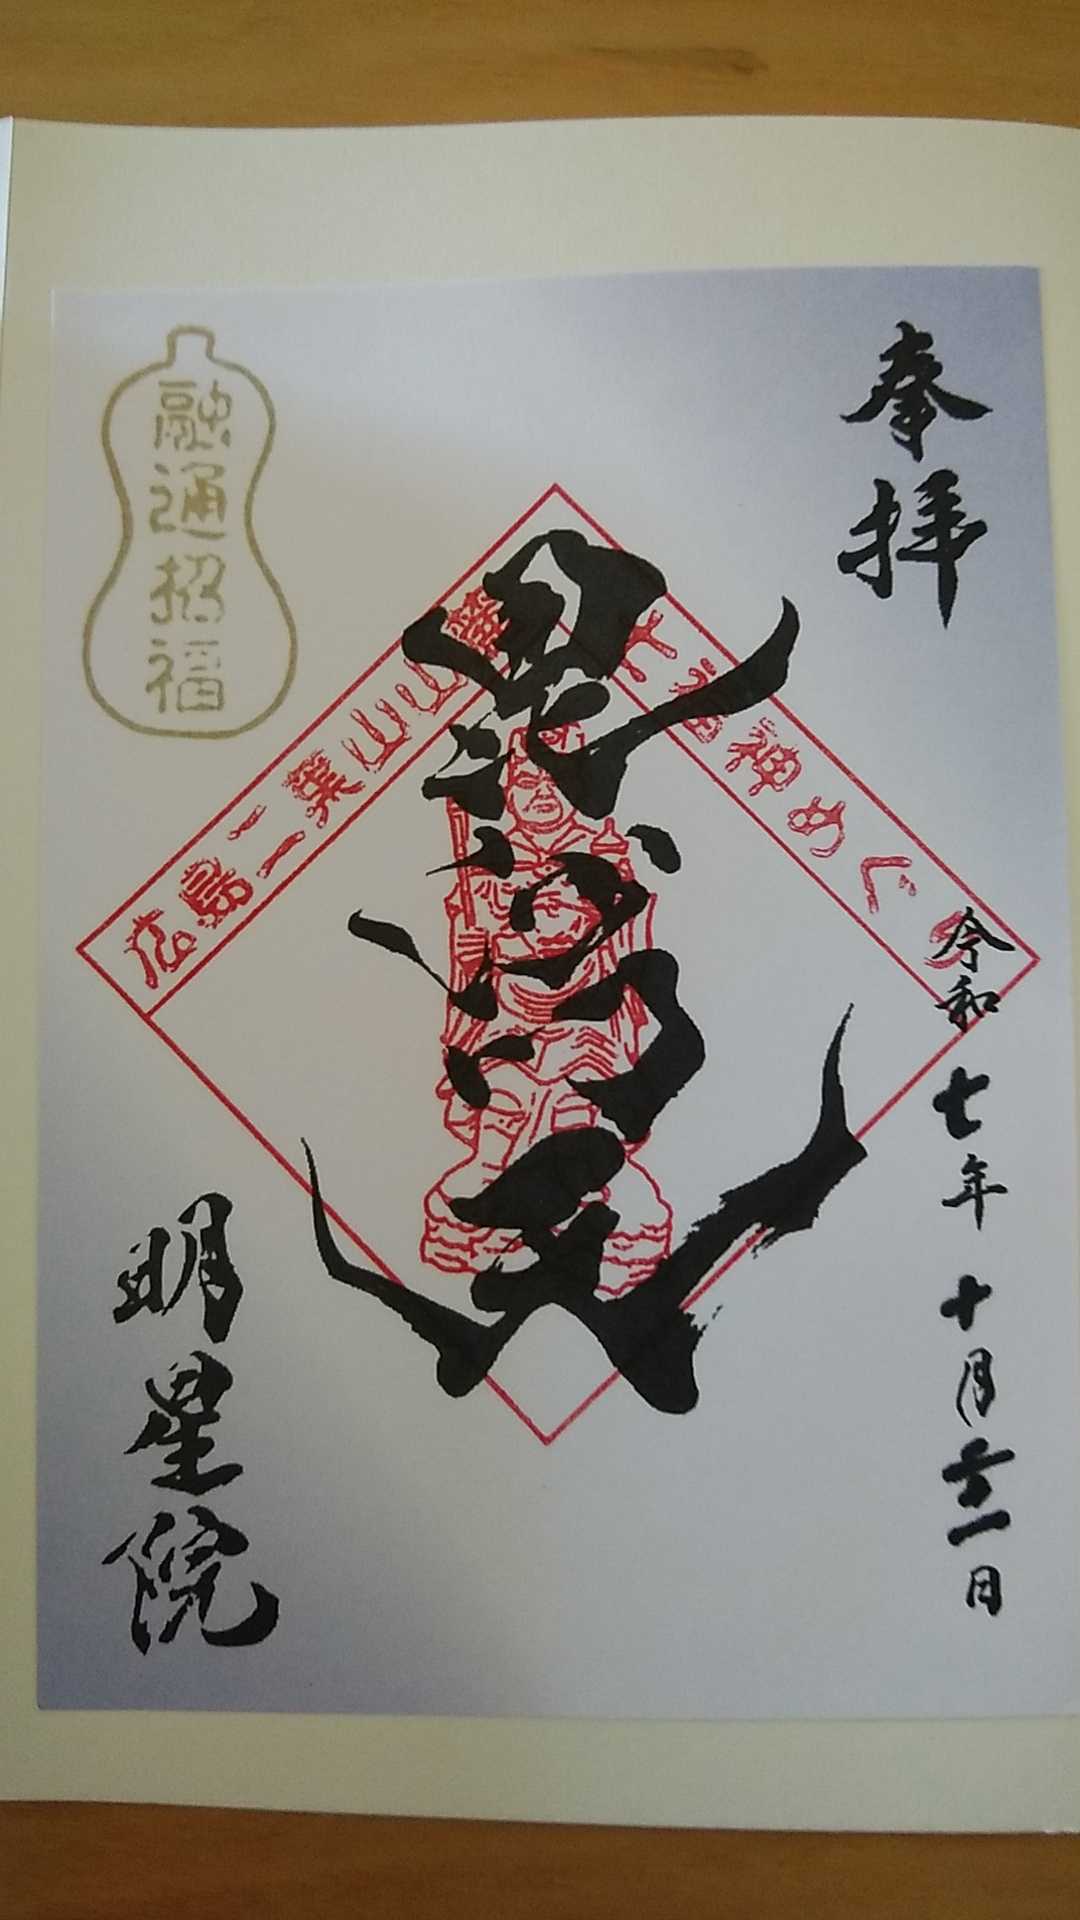 奉拝
令和七年十月廿一日
七福神めぐり
広島二葉山山麓
毘沙門天
融通招福
明星院